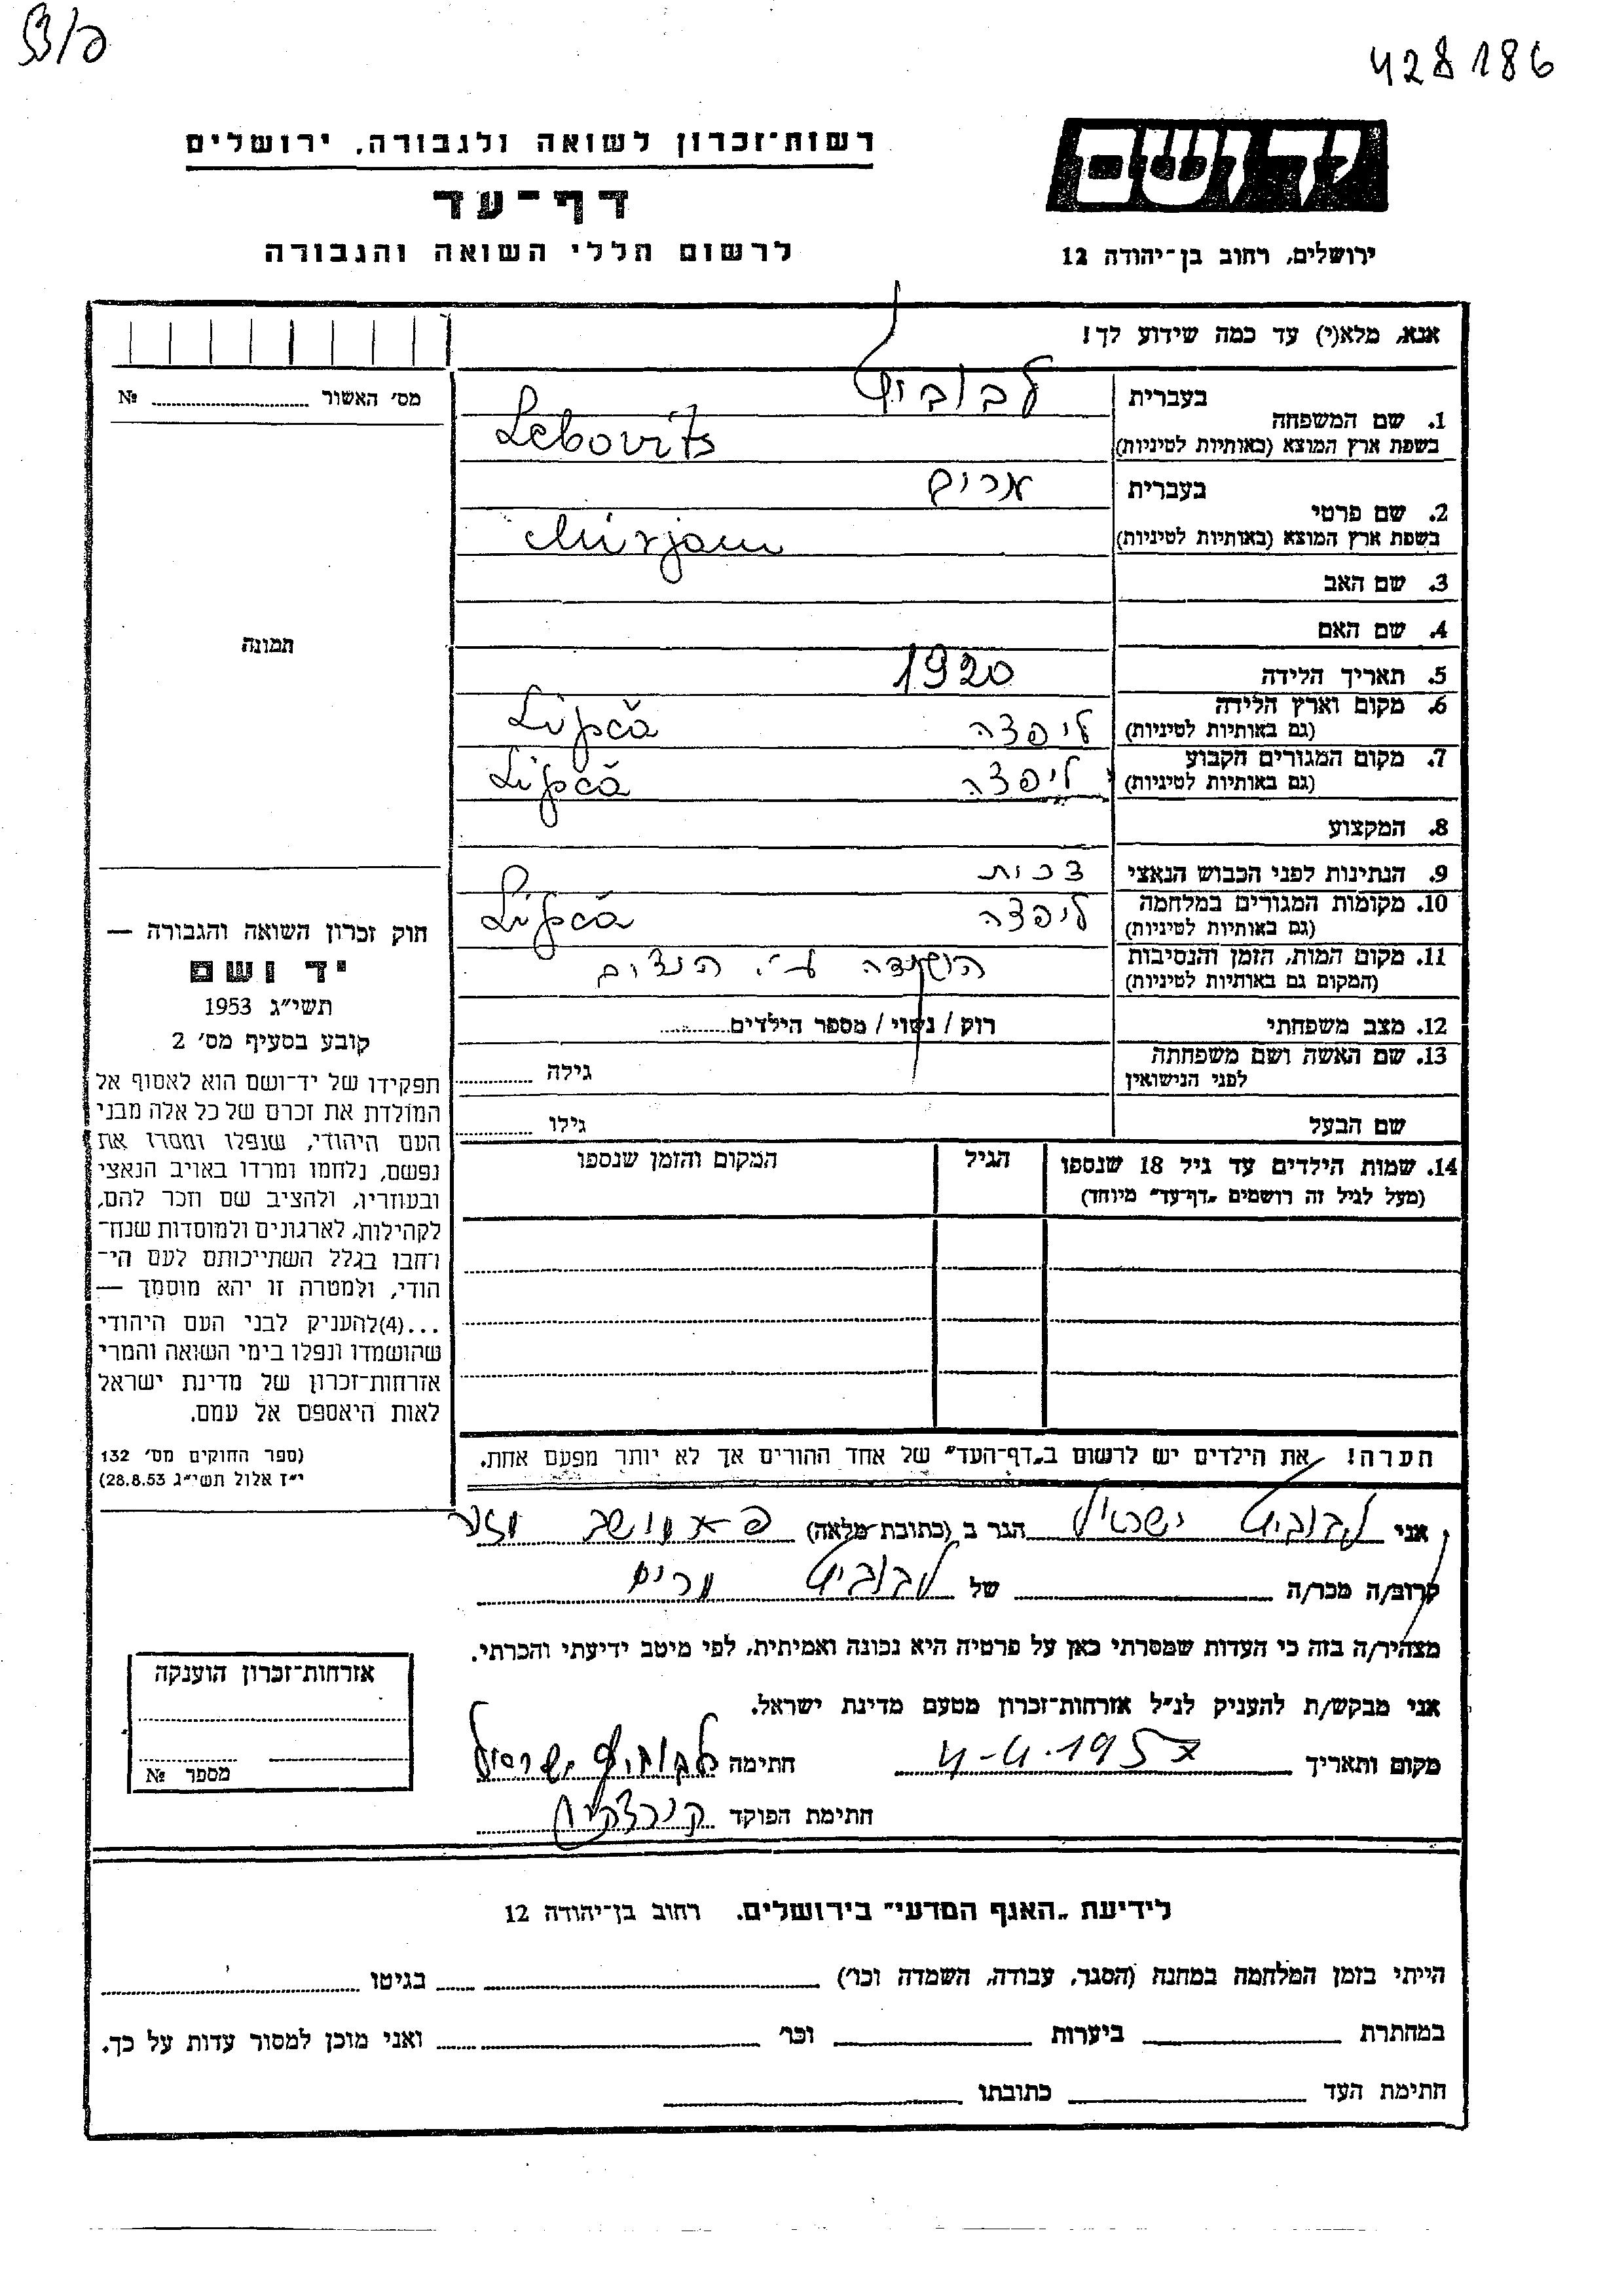 ל/53
428186
רשות־זכרון לשואה ולגבורה, ירושלים
דף־עד
לרשום חללי השואה והגבורה
יד ושם
ירושלים, רחוב בן־יהודה 12
אנא, מלא(י) עד כמה שידוע לך!
מס׳ האשור № 
1. שם המשפחה
בעברית לבוביץ
בשפת ארץ המוצא (באותיות לטיניות) Lebovits
2. שם פרטי
בעברית מרים
בשפת ארץ המוצא (באותיות לטיניות) Mirjam
3. שם האב
4. שם האם
5. תאריך הלידה 1920
6. מקום וארץ הלידה
(גם באותיות לטיניות) ליפצה Lipčă
7. מקום המגורים הקבוע
(גם באותיות לטיניות) ליפצה Lipčă
8. המקצוע
9. הנתינות לפני הכבוש הנאצי צכות
10. מקומות המגורים במלחמה
(גם באותיות לטיניות) ליפצה Lipčă
11. מקום המות, הזמן והנסיבות
(המקום גם באותיות לטיניות) הושמדה ע״י הנצים
12. מצב משפחתי רוק / נשוי / מספר הילדים
13. שם האשה ושם משפחתה
לפני הנישואין גילה
שם הבעל גילו
14. שמות הילדים עד גיל 18 שנספו
(מעל לגיל זה רושמים „דף־עד״ מיוחד)
הגיל
המקום והזמן שנספו
תמונה
חוק זכרון השואה והגבורה —
יד ושם
תשי״ג 1953
קובע בסעיף מס׳ 2
תפקידו של יד־ושם הוא לאסוף אל
המולדת את זכרם של כל אלה מבני
העם היהודי, שנפלו ומסרו את
נפשם, נלחמו ומרדו באויב הנאצי
ובעוזריו, ולהציב שם וזכר להם,
לקהילות, לארגונים ולמוסדות שנח־
רחבו בגלל השתייכותם לעם הי־
הודי, ולמטרה זו יהא מוסמך —
...(4)להעניק לבני העם היהודי
שהושמדו ונפלו בימי השואה והמרי
אזרחות־זכרון של מדינת ישראל
לאות היאספם אל עמם.
(ספר החוקים מס׳ 132
י״ז אלול תשי״ג 28.8.53)
הערה! את הילדים יש לרשום ב„דף־העד״ של אחד ההורים אך לא יותר מפעם אחת.
אני לבוביץ ישראל הגר ב (כתובת מלאה) מושב
קרוב/ה מכר/ה של לבוביץ מרים
מצהיר/ה בזה כי העדות שמסרתי כאן על פרטיה היא נכונה ואמיתית, לפי מיטב ידיעתי והכרתי.
אני מבקש/ת להעניק לנ״ל אזרחות־זכרון מטעם מדינת ישראל.
מקום ותאריך 4-4.1957 חתימה לבוביץ ישראל
חתימת הפוקד
אזרחות־זכרון הוענקה
מספר №
לידיעת „האגף המדעי״ בירושלים. רחוב בן־יהודה 12
הייתי בזמן המלחמה במחנה (הסגר, עבודה, השמדה וכו׳) בגיטו
במחתרת ביערות וכו׳ ואני מוכן למסור עדות על כך.
חתימת העד כתובתו